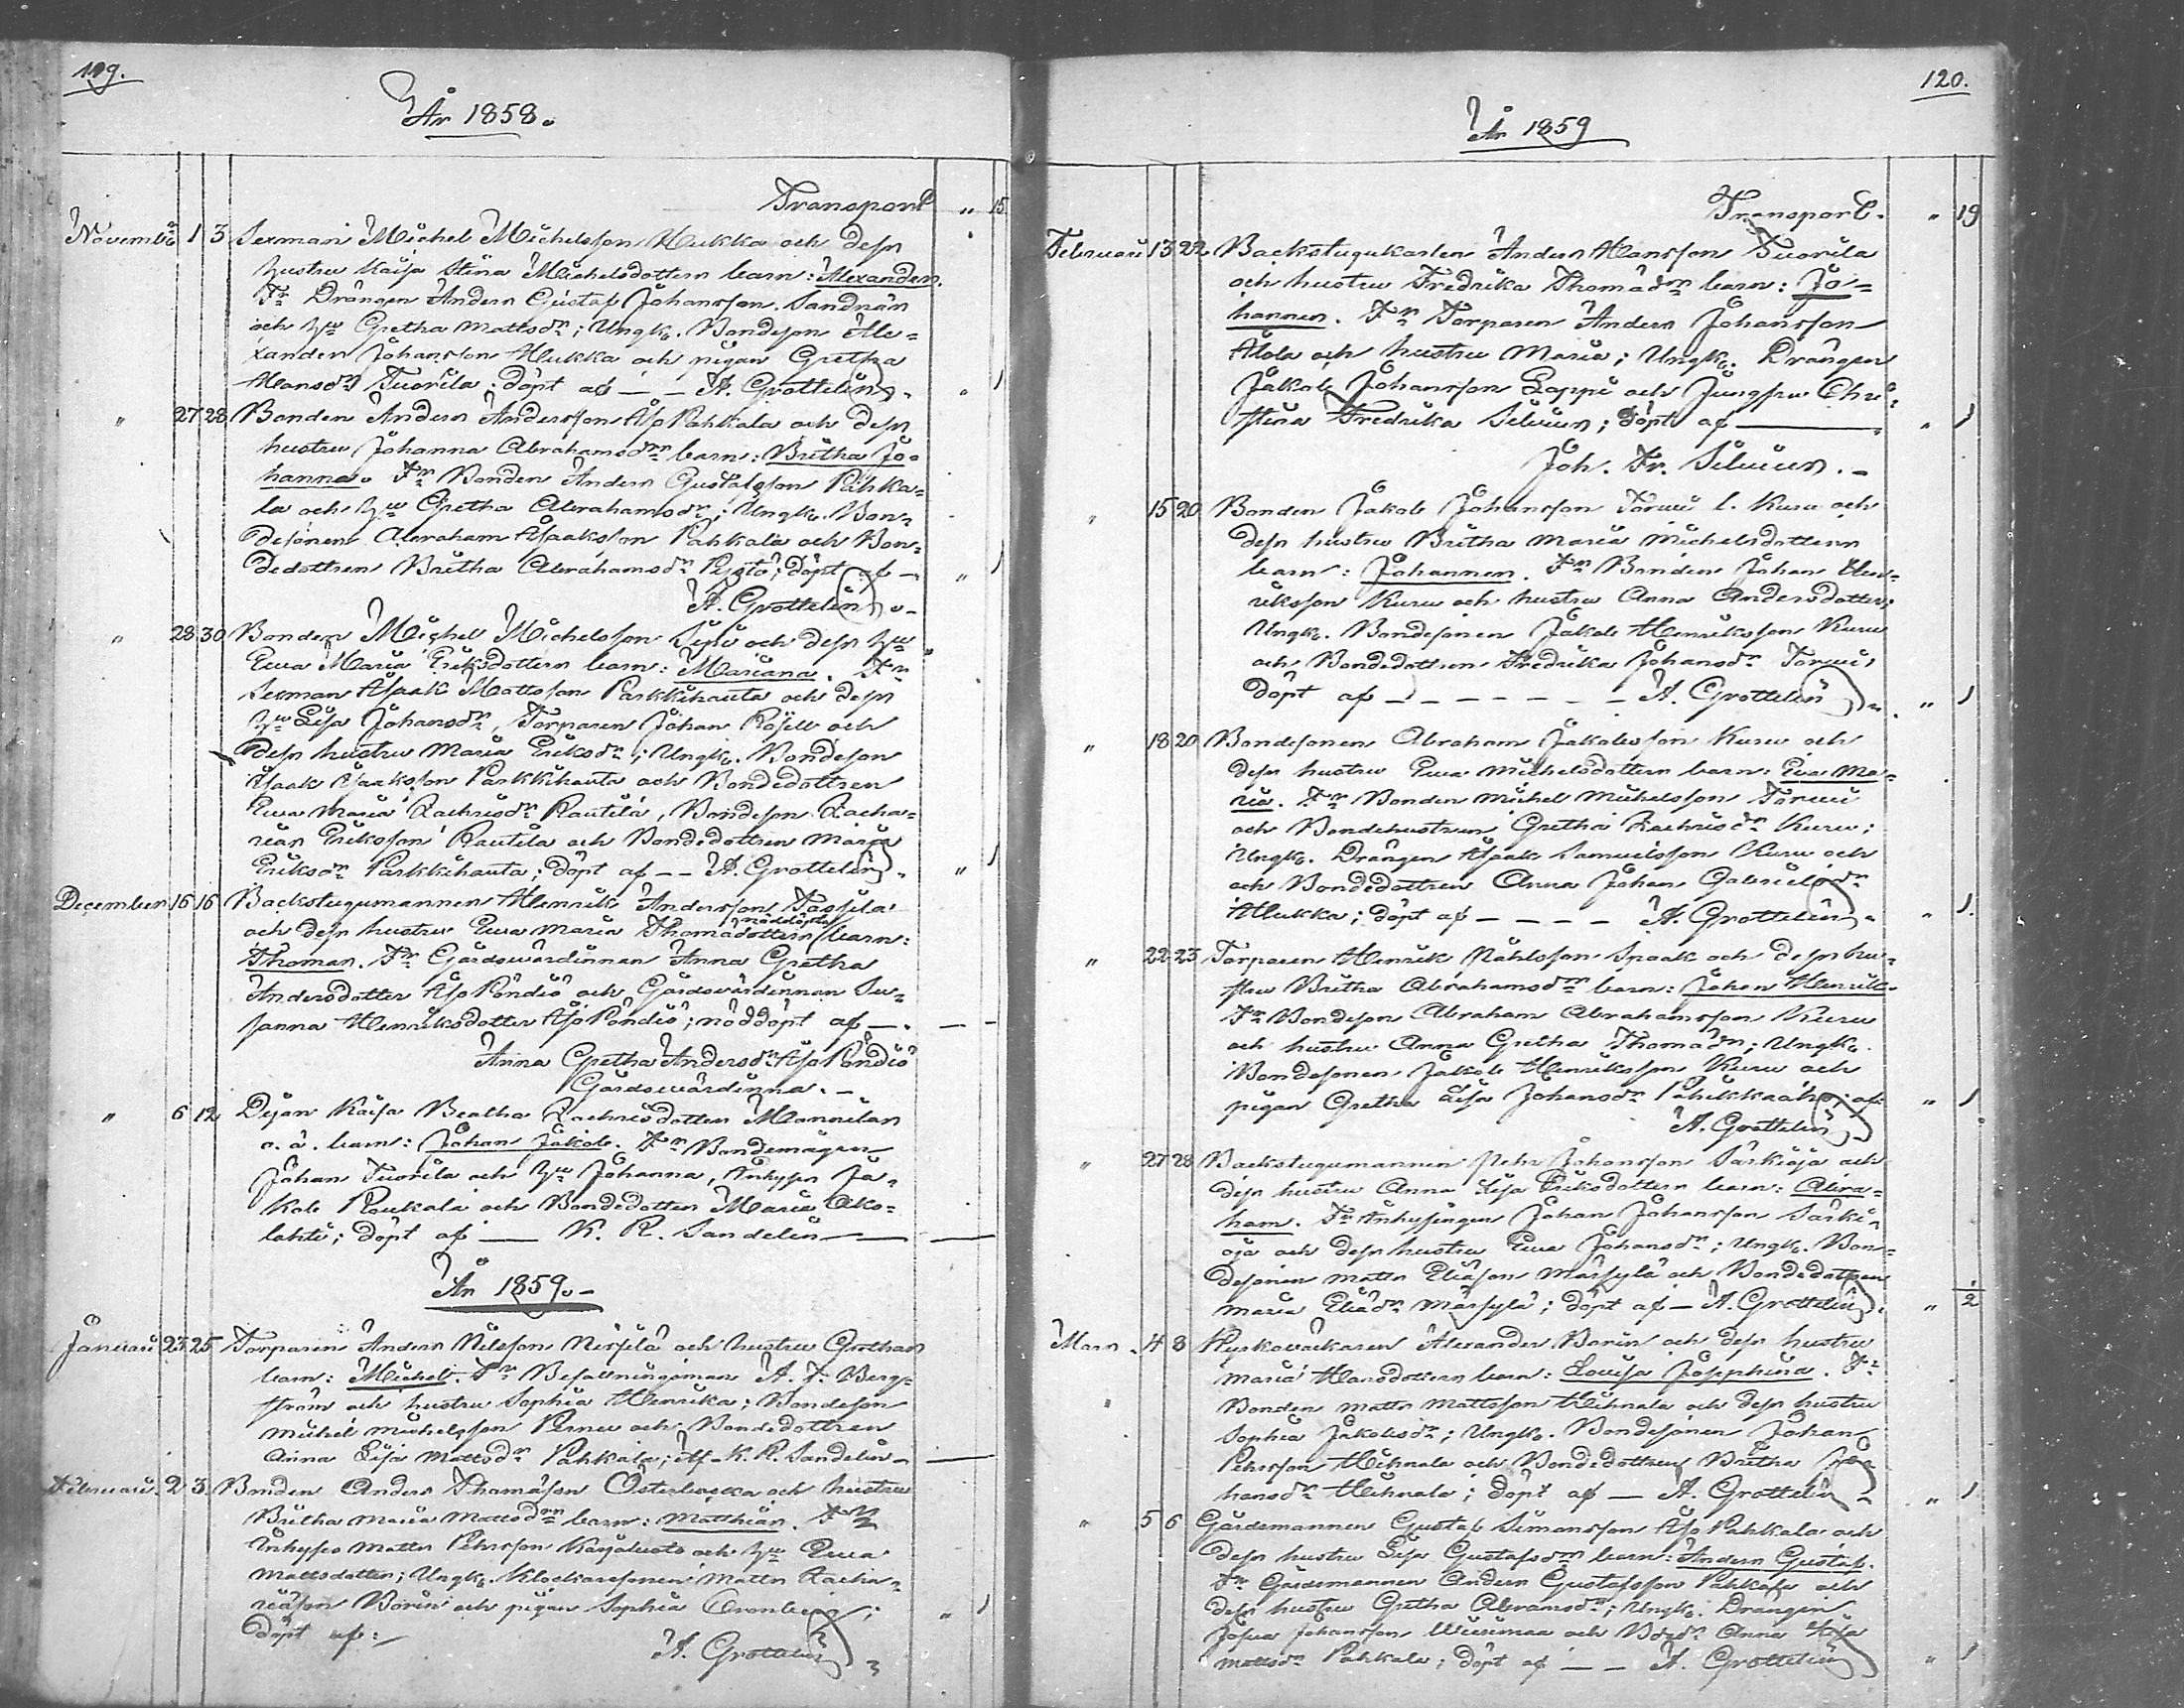 119.
År 1858.
Transport „ 15
November 1 3 Sexman Michel Michelsson Hukka och dess
hustru Kaisa Stina Michelsdotters barn: Alexander.
Fr Drängen Anders Gustaf Johansson Sandnär
och hu Gretha Mattsdr; Ungk. Bondeson Ale-
xander Johansson Hukka och pigan Gretha
Hansdr Tuorila; döpt af — — A. Grottelin. „ 1
„ 27 28 Bonden Anders Andersson Ala Pahkala och dess
hustru Johanna Abrahamsdrs barn: Britha Jo-
hanna. Fr Bonden Anders Gustafsson Pahka-
la och hu Gretha Abrahamsdr; Ungk. Bon-
desonen Abraham Isaaksson Pahkala och Bon-
dedottren Britha Abrahamsdr; döpt af — „ 1
A. Grottelin.
„ 28 30 Bonden Michel Michelsson och dess hu
Ewa Maria Eriksdotters barn: Mariana. Fr
Sexman Isaak Mattsson Parkkihauta och dess
hu Lisa Johansdr, Torparen Johan Rosell och
dess hustru Maria Eriksdr; Ungk. Bondeson
Isaak Isaaksson Parkkihauta och Bondedottren
Ewa Maria Zachrisdr Rautila, Bondeson Zacha-
rias Eriksson Rautila och Bondedottren Maria
Eriksdr Parkkihauta; döpt af — — A. Grottelin. „ 1
December 16 16 Backstugumannen Henrik Andersson Tassila
och dess hustru Ewa Maria Thomadotters nöddöpta barn:
Thomas. Fr Gårdswärdinnan Anna Gretha
Andersdotter Aso Pöndiö och Gårdswärdinnan Su-
sanna Henriksdotter Aso Pöndiö; nöddöpt af —
Anna Gretha Andersdr Aso Pöndiö
Gårdswärdinna. —
„ 6 12 Dejan Kaisa Beatha Zachrisdotter Mannilas
o. ä. barn: Johan Jakob. Fr Bondemågen
Johan Tuorila och hu Johanna, Inhyses Ja-
kob Roukala och Bondedotter Maria Isko-
lahti; döpt af — K. R. Sandelin —
År 1859. —
Januari 23 25 Torparen Anders Nilsson Nissilä och hustru Grethas
barn: Michel. Fr Befallningsman A. F. Berg-
ström och hustru Sophia Henrika; Bondeson
Michel Michelsson Pernu och Bondedottren
Anna Lisa Mattsdr Pahkala; Af — K. R. Sandelin —
Februari 2 3 Bonden Anders Thomasson Österbacka och hustru
Britha Maria Mattsdrs barn: Matthias. Fr
Inhyses Matts Pehrsson Karjaluoto och hu Ewa
Mattsdotter; Ungk. Klockaresonen Matts Zacha-
riasson Borin och pigan Sophia Cronberg; „ 1
döpt af: —
A. Grottelin
120.
År 1859
Transport. „ 19
Februari 13 22 Backstugukarlen Anders Hansson Tuorila
och hustru Fredrika Thomadrs barn: Jo-
hannes. Fr Torparen Anders Johansson
Alola och hustru Maria; Ungk. Drängen
Jakob Johansson Lappi och Jungfru Chri-
stina Fredrika Silvius; döpt af — „ 1
Joh. Fr. Silvius. —
„ 15 20 Bonden Jakob Johansson Torwi l. Kuru och
dess hustru Britha Maria Michelsdotters
barn: Johannes. Fr Bonden Johan Hen-
riksson Kuru och hustru Anna Andersdotter;
Ungk. Bondesonen Jakob Henriksson Kuru
och Bondedottren Fredrika Johansdr Torwi;
döpt af — — — — — — A. Grottelin. „ 1
„ 18 20 Bondesonen Abraham Jakobsson Kuru och
dess hustru Ewa Michelsdotters barn: Ewa Ma-
ria. Fr Bonden Michel Michelsson Torwi
och Bondehustrun Gretha Zachrisdr Kuru;
Ungk. Drängen Isaak Samuelsson Kuru och
och Bondedottren Anna Johan Gabrielsdr
Hukka; döpt af — — — — A. Grottelin. „ 1.
„ 22 23 Torparen Henrik Mählsson Spaak och dess hu-
stru Britha Abrahamsdrs barn: Johan Henrik.
Fr Bondeson Abraham Abrahamsson Kuru
och hustru Anna Gretha Thomadr; Ungk.
Bondesonen Jakob Henriksson Kuru och
pigan Gretha Lisa Johansdr; af „ 1
A. Grottelin.
„ 27 28 Backstugumannen Pehr Johansson Särkioja och
dess hustru Anna Lisa Eriksdotters barn: Abra-
ham. Fr Inhysingen Johan Johansson Särki-
oja och dess hustru Ewa Johansdr; Ungk. Bon-
desonen Matts Eliasson Märsylä och Bondedottren
Maria Eliadr Märsylä; döpt af — A. Grottelin. „ ½
Mars 4 8 Ryskaväckaren Alexander Borin och dess hustru
Maria Hansdotters barn: Lovisa Josephina. Fr
Bonden Matts Mattsson Hihnala och dess hustru
Sophia Jakobsdr; Ungk. Bondesonen Johan
Pehrsson Hihnala och Bondedottren Britha Jo-
hansdr Hihnala; döpt af — A. Grottelin „ 1
„ 5 6 Gårdsmannen Gustaf Simonsson Ala Pahkala och
dess hustru Lisa Gustafsdrs barn: Anders Gustaf.
Fr Gårdsmannen Anders Gustafsson Pahkala och
dess hustru Gretha Abramsdr; Ungk. Drängen
Josua Johansson Wiirimaa och Bdedr Anna Lisa
Mattsdr Pahkala; döpt af — — A. Grottelin „ 1